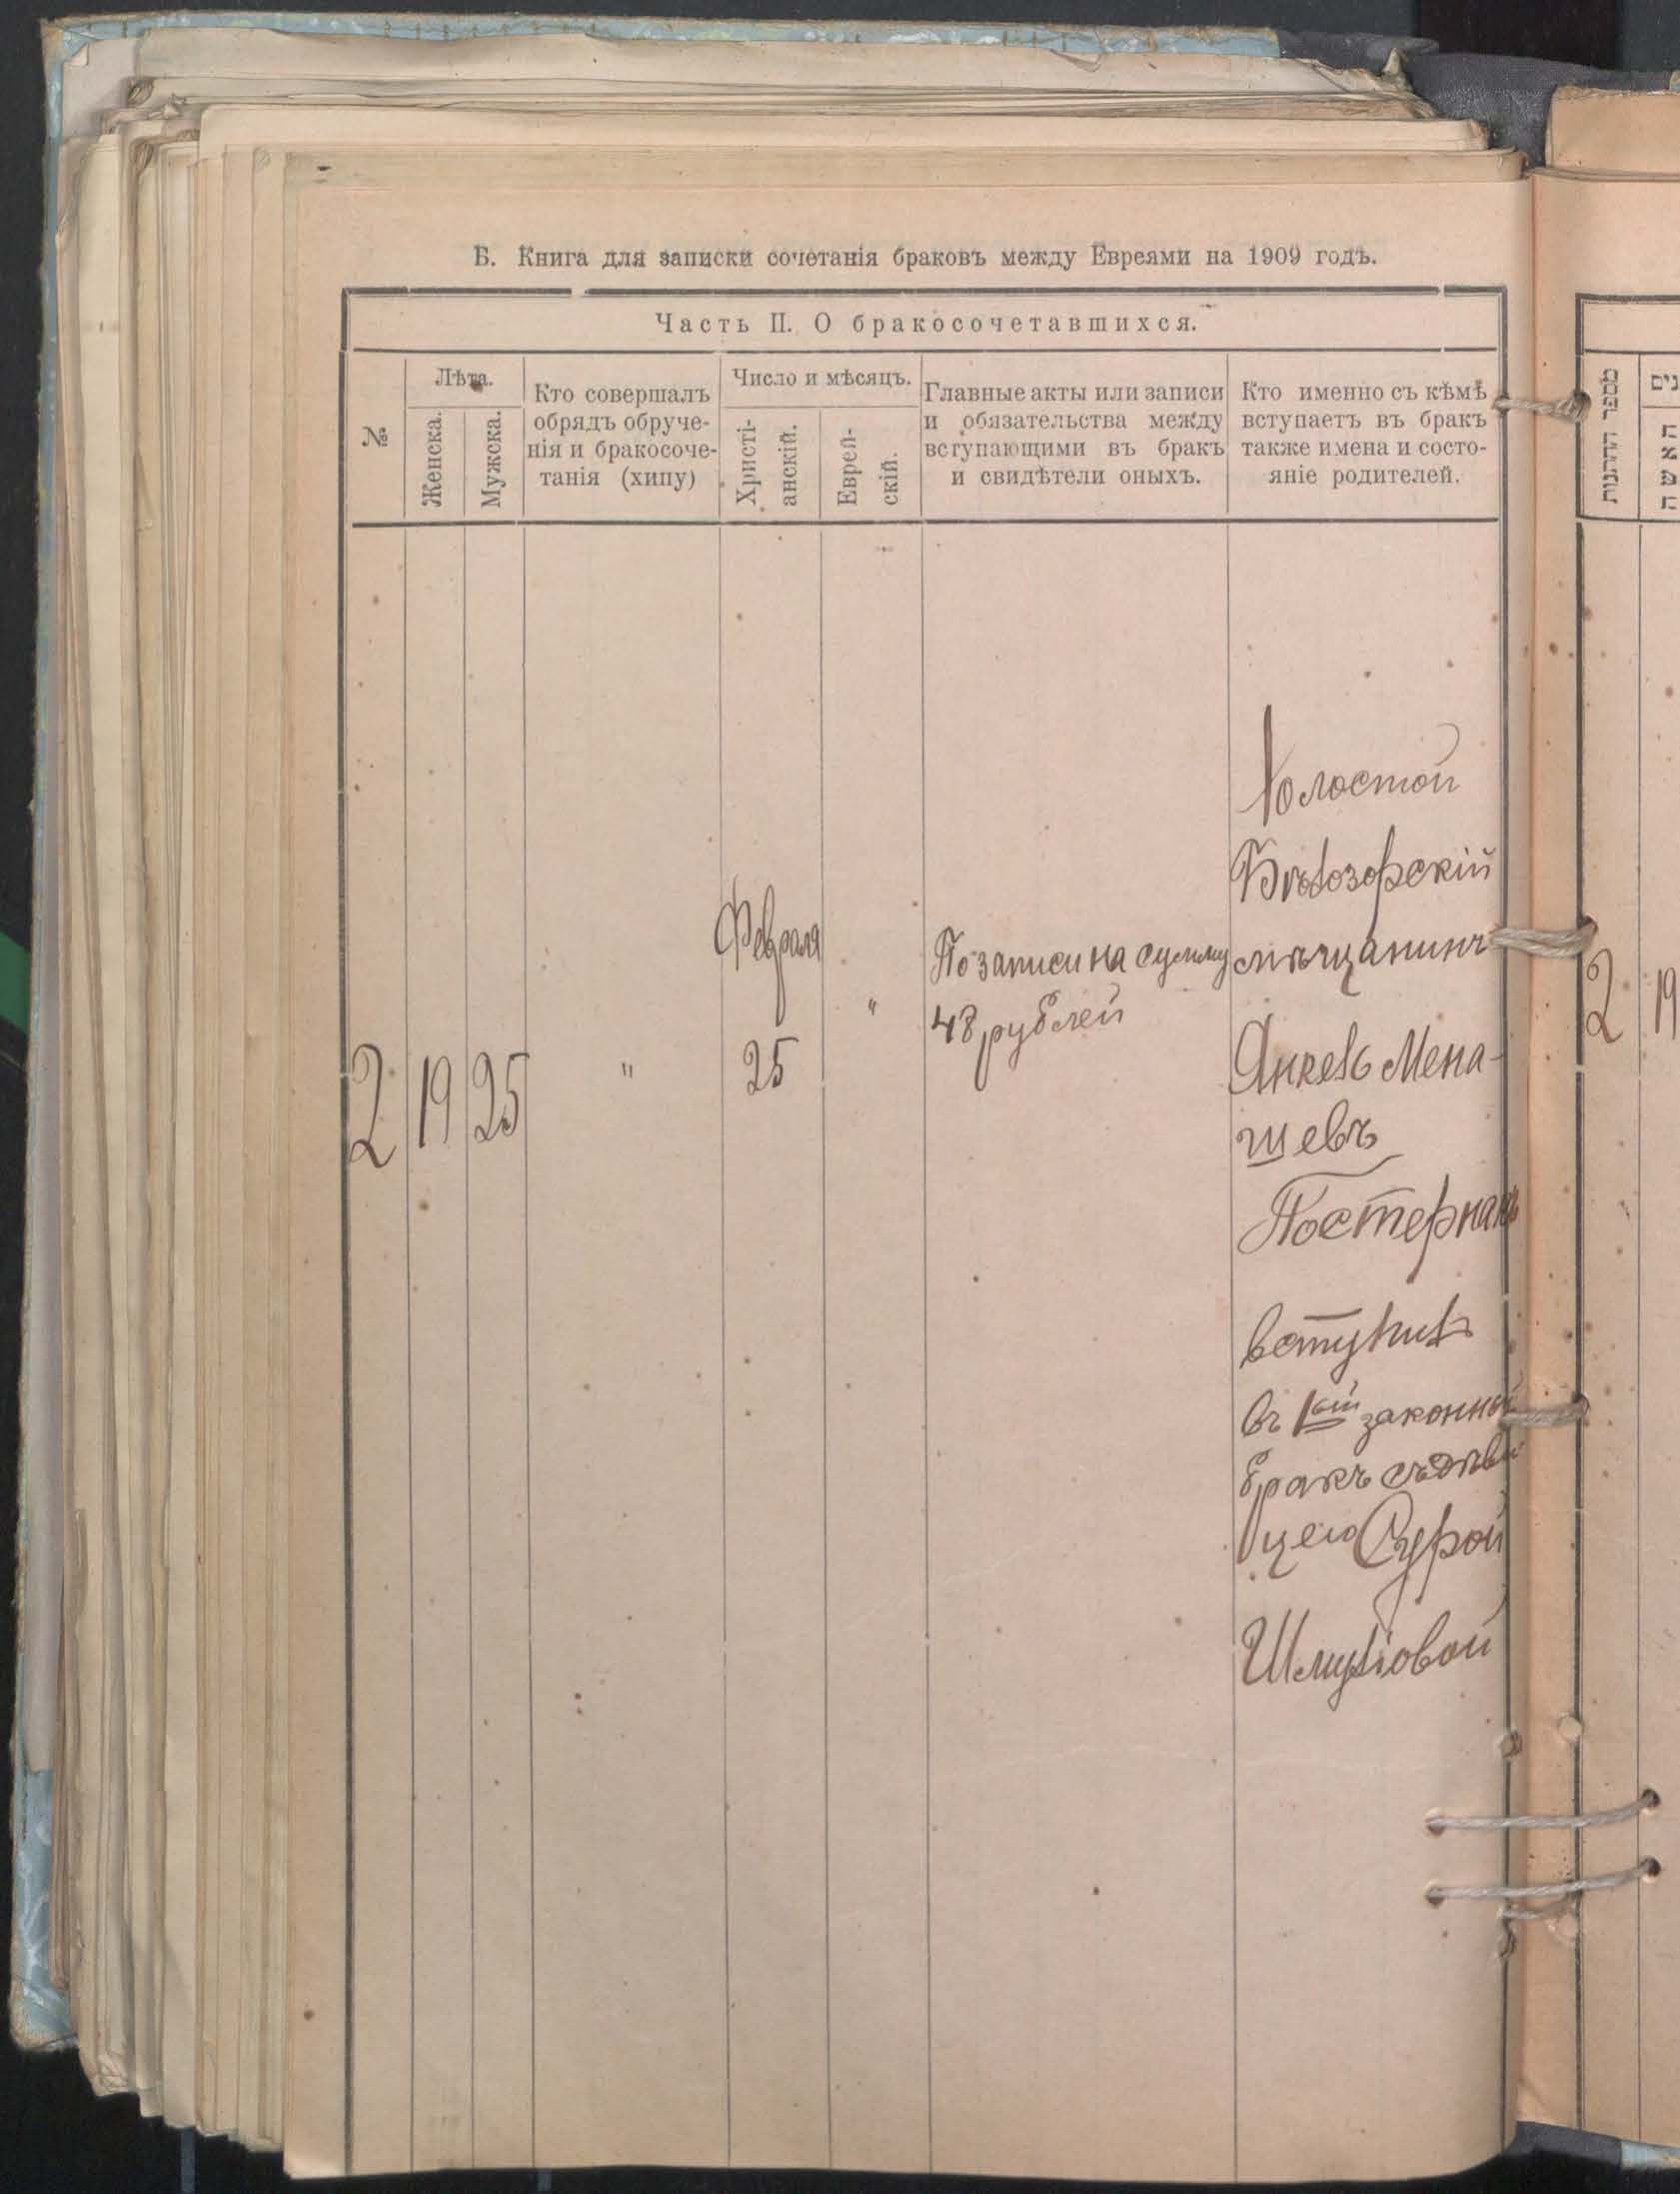 Б. Книга для записки сочетанія браковъ между Евреями на 1909 годъ.
Часть II. О бракосочетавшихся.
№
Лѣта.
Женска.
Мужска.
Кто совершалъ
обрядъ обруче-
нія и бракосоче-
танія (хипу)
Число и мѣсяцъ.
Христі-
анскій.
Еврей-
скій.
Главные акты или записи
и обязательства между
вступающими въ бракъ
и свидѣтели оныхъ.
Кто именно съ кѣмѣ
вступаетъ въ бракъ
также имена и состо-
яніе родителей.
2
19
25
"
Февраля
25
"
По записи на сумму
48 рублей
Холостой
Бѣлозорскій
мѣщанинъ
Янкель Мена-
шевъ
Постернакъ
вступилъ
въ 1ый законный
бракъ съ дѣви
цею Сурой
Шмулiовой
מספר החתנות
נים
האשה
2
19